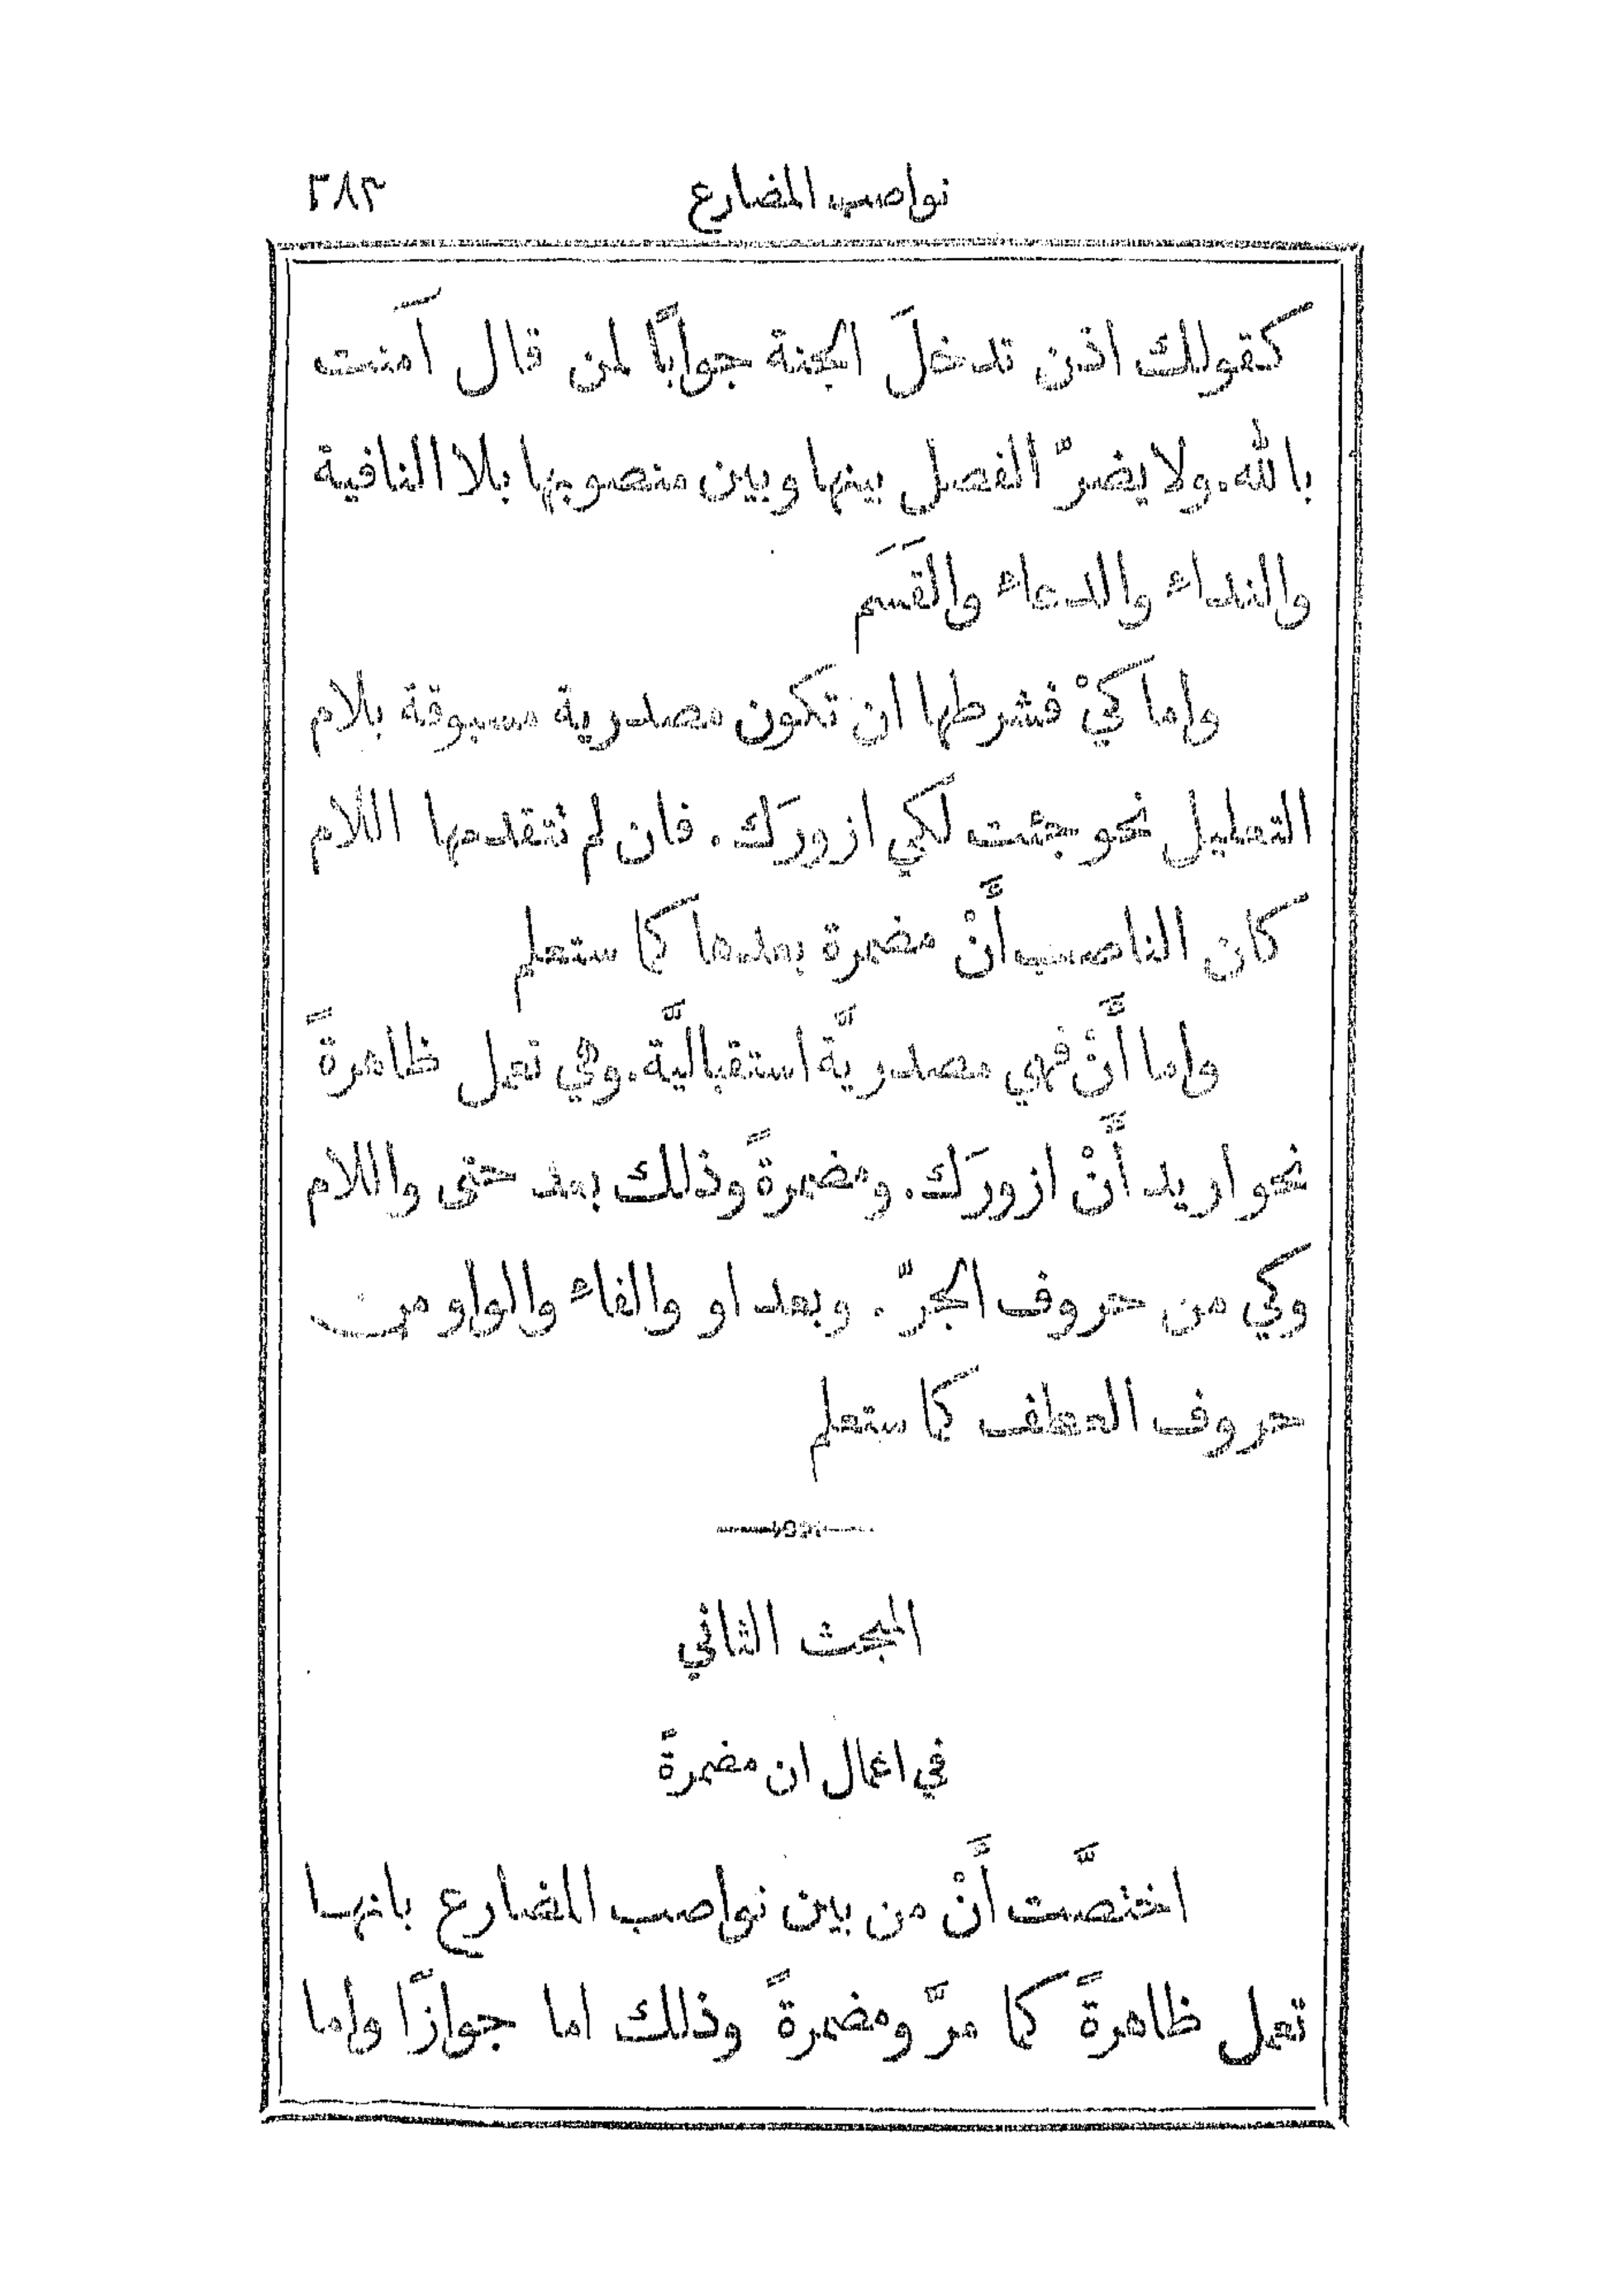 نواصب المضارع ٢٨٣
كقولك اذن تدخلَ الجنة جوابًا لمن قال آمنت
بالله. ولا يضرّ الفصل بينها وبين منصوبها بلا النافية
والنداء والدعاء والقَسَم
واما كيْ فشرطها ان تكون مصدرية مسبوقة بلام
التعليل نحو جئت لكي ازورَك. فان لم تتقدمها اللام
كان الناصب أَنْ مضمرة بعدها كما ستعلم
واما أَنْ فهي مصدريَّة استقباليَّة. وهي تعمل ظاهرةً
نحو اريد أَنْ ازورَك. ومضمرةً وذلك بعد حتى واللام
وكي من حروف الجرّ. وبعد او والفاء والواو من
حروف العطف كما ستعلم
المبحث الثاني
في اعمال ان مضمرةً
اختصَّت أَنْ من بين نواصب المضارع بانها
تعمل ظاهرةً كما مرَّ ومضمرةً وذلك اما جوازًا واما